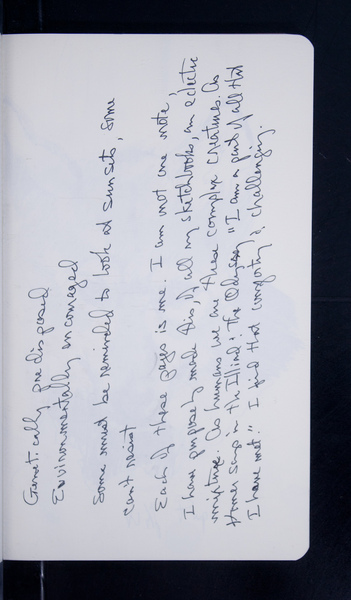 Genetically predisposed
Environmentally encouraged
Some must be reminded to look at sunsets, some
can't resist
Each of these pages is me. I am not one note,
I have purposely made this, of all my sketchbooks, an eclectic
mixture. As humans we are these complex creatures. As
Homer says in th Illiad & The Odyssey "I am a part of all that
I have met." I find that comforting & challenging.